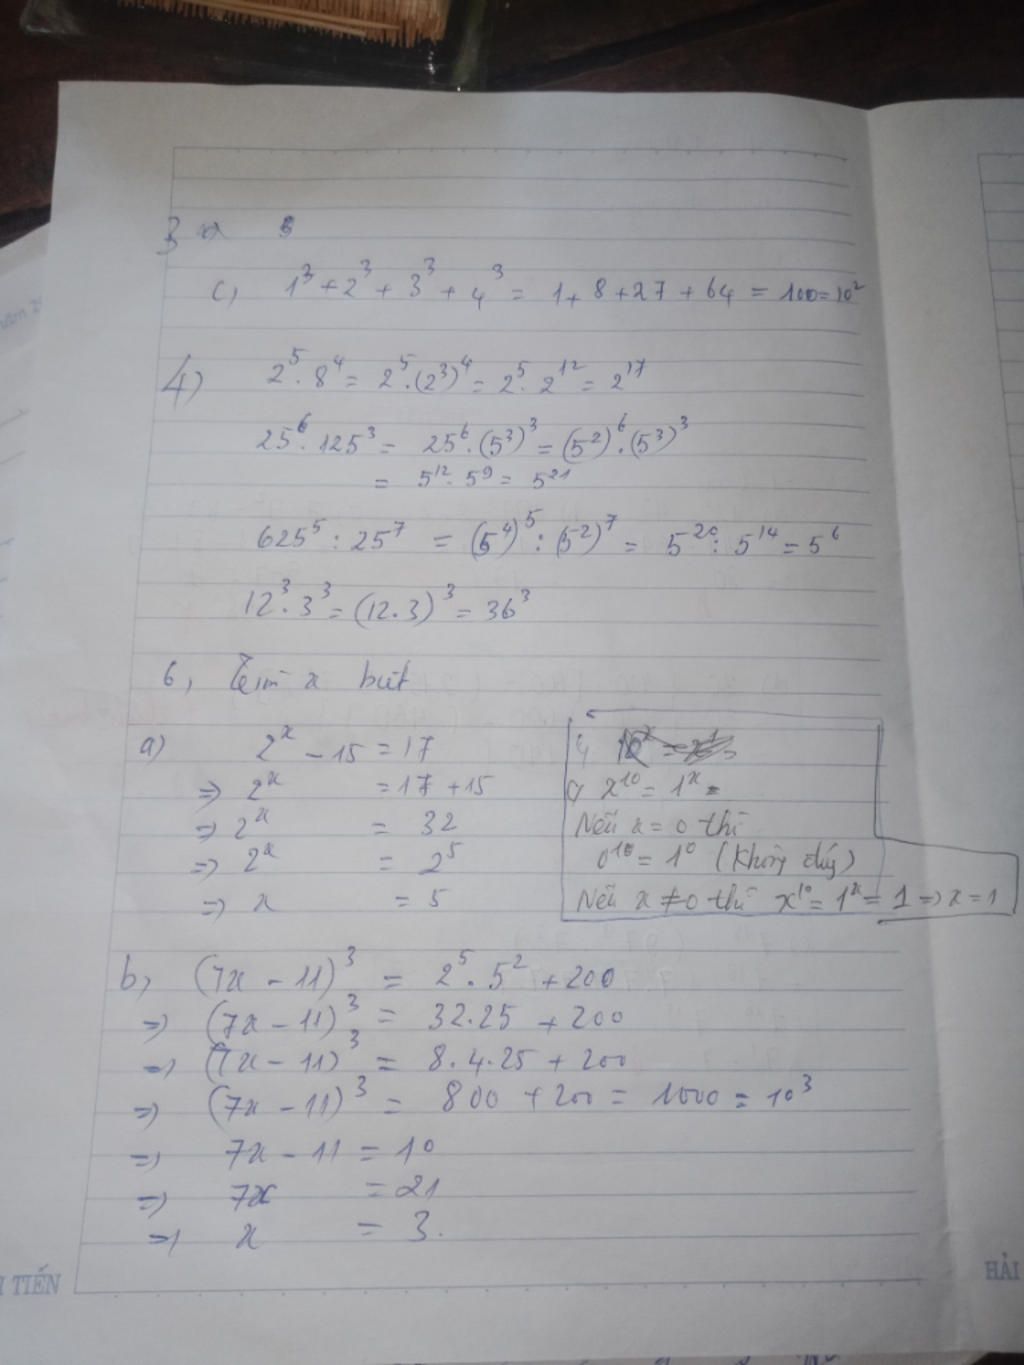 3
c) 1³ + 2³ + 3³ + 4³ = 1 + 8 + 27 + 64 = 100 = 10²
4) 2⁵ . 8⁴ = 2⁵ . (2³)⁴ = 2⁵ . 2¹² = 2¹⁷
25⁶ . 125³ = 25⁶ . (5³)³ = (5²)⁶ . (5³)³
= 5¹² . 5⁹ = 5²¹
625⁵ : 25⁷ = (5⁴)⁵ : (5²)⁷ = 5²⁰ : 5¹⁴ = 5⁶
12³ . 3³ = (12 . 3)³ = 36³
6, Tìm x biết
a) 2ˣ - 15 = 17
=> 2ˣ = 17 + 15
=> 2ˣ = 32
=> 2ˣ = 2⁵
=> x = 5
c) x¹⁰ = 1ˣ
Nếu x = 0 thì
0¹⁰ = 1⁰ (Không đúng)
Nếu x ≠ 0 thì x¹⁰ = 1ˣ = 1 => x = 1
b, (7x - 11)³ = 2⁵ . 5² + 200
=> (7x - 11)³ = 32 . 25 + 200
=> (7x - 11)³ = 8 . 4 . 25 + 200
=> (7x - 11)³ = 800 + 200 = 1000 = 10³
=> 7x - 11 = 10
=> 7x = 21
=> x = 3.
TIẾN
HẢI